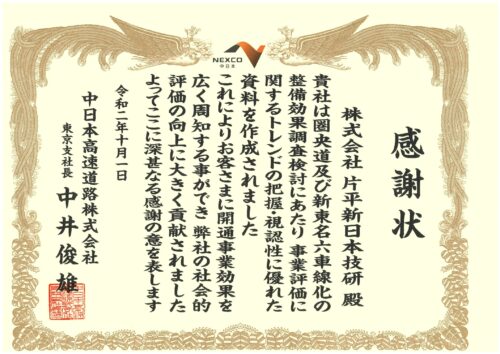 NEXCO
中日本
感謝状
株式会社 片平新日本技研 殿
貴社は圏央道及び新東名六車線化の
整備効果調査検討にあたり 事業評価に
関するトレンドの把握・視認性に優れた
資料を作成されました
これによりお客さまに開通事業効果を
広く周知する事ができ 弊社の社会的
評価の向上に大きく貢献されました
よってここに深甚なる感謝の意を表します
令和二年十月一日
中日本高速道路株式会社
東京支社長 中井俊雄